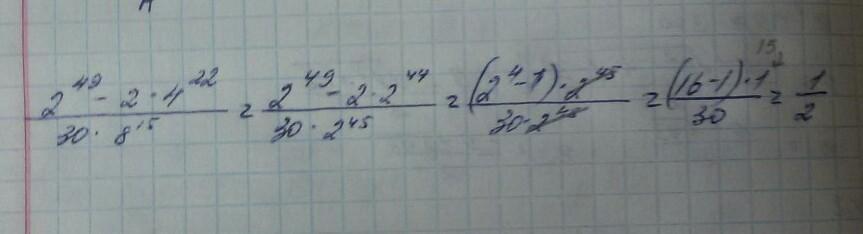 (2^49 - 2 · 4^22)/(30 · 8^15) = (2^49 - 2 · 2^44)/(30 · 2^45) = ((2^4 - 1) · 2^45)/(30 · 2^45) = ((16 - 1) · 1)/30 = 1/2